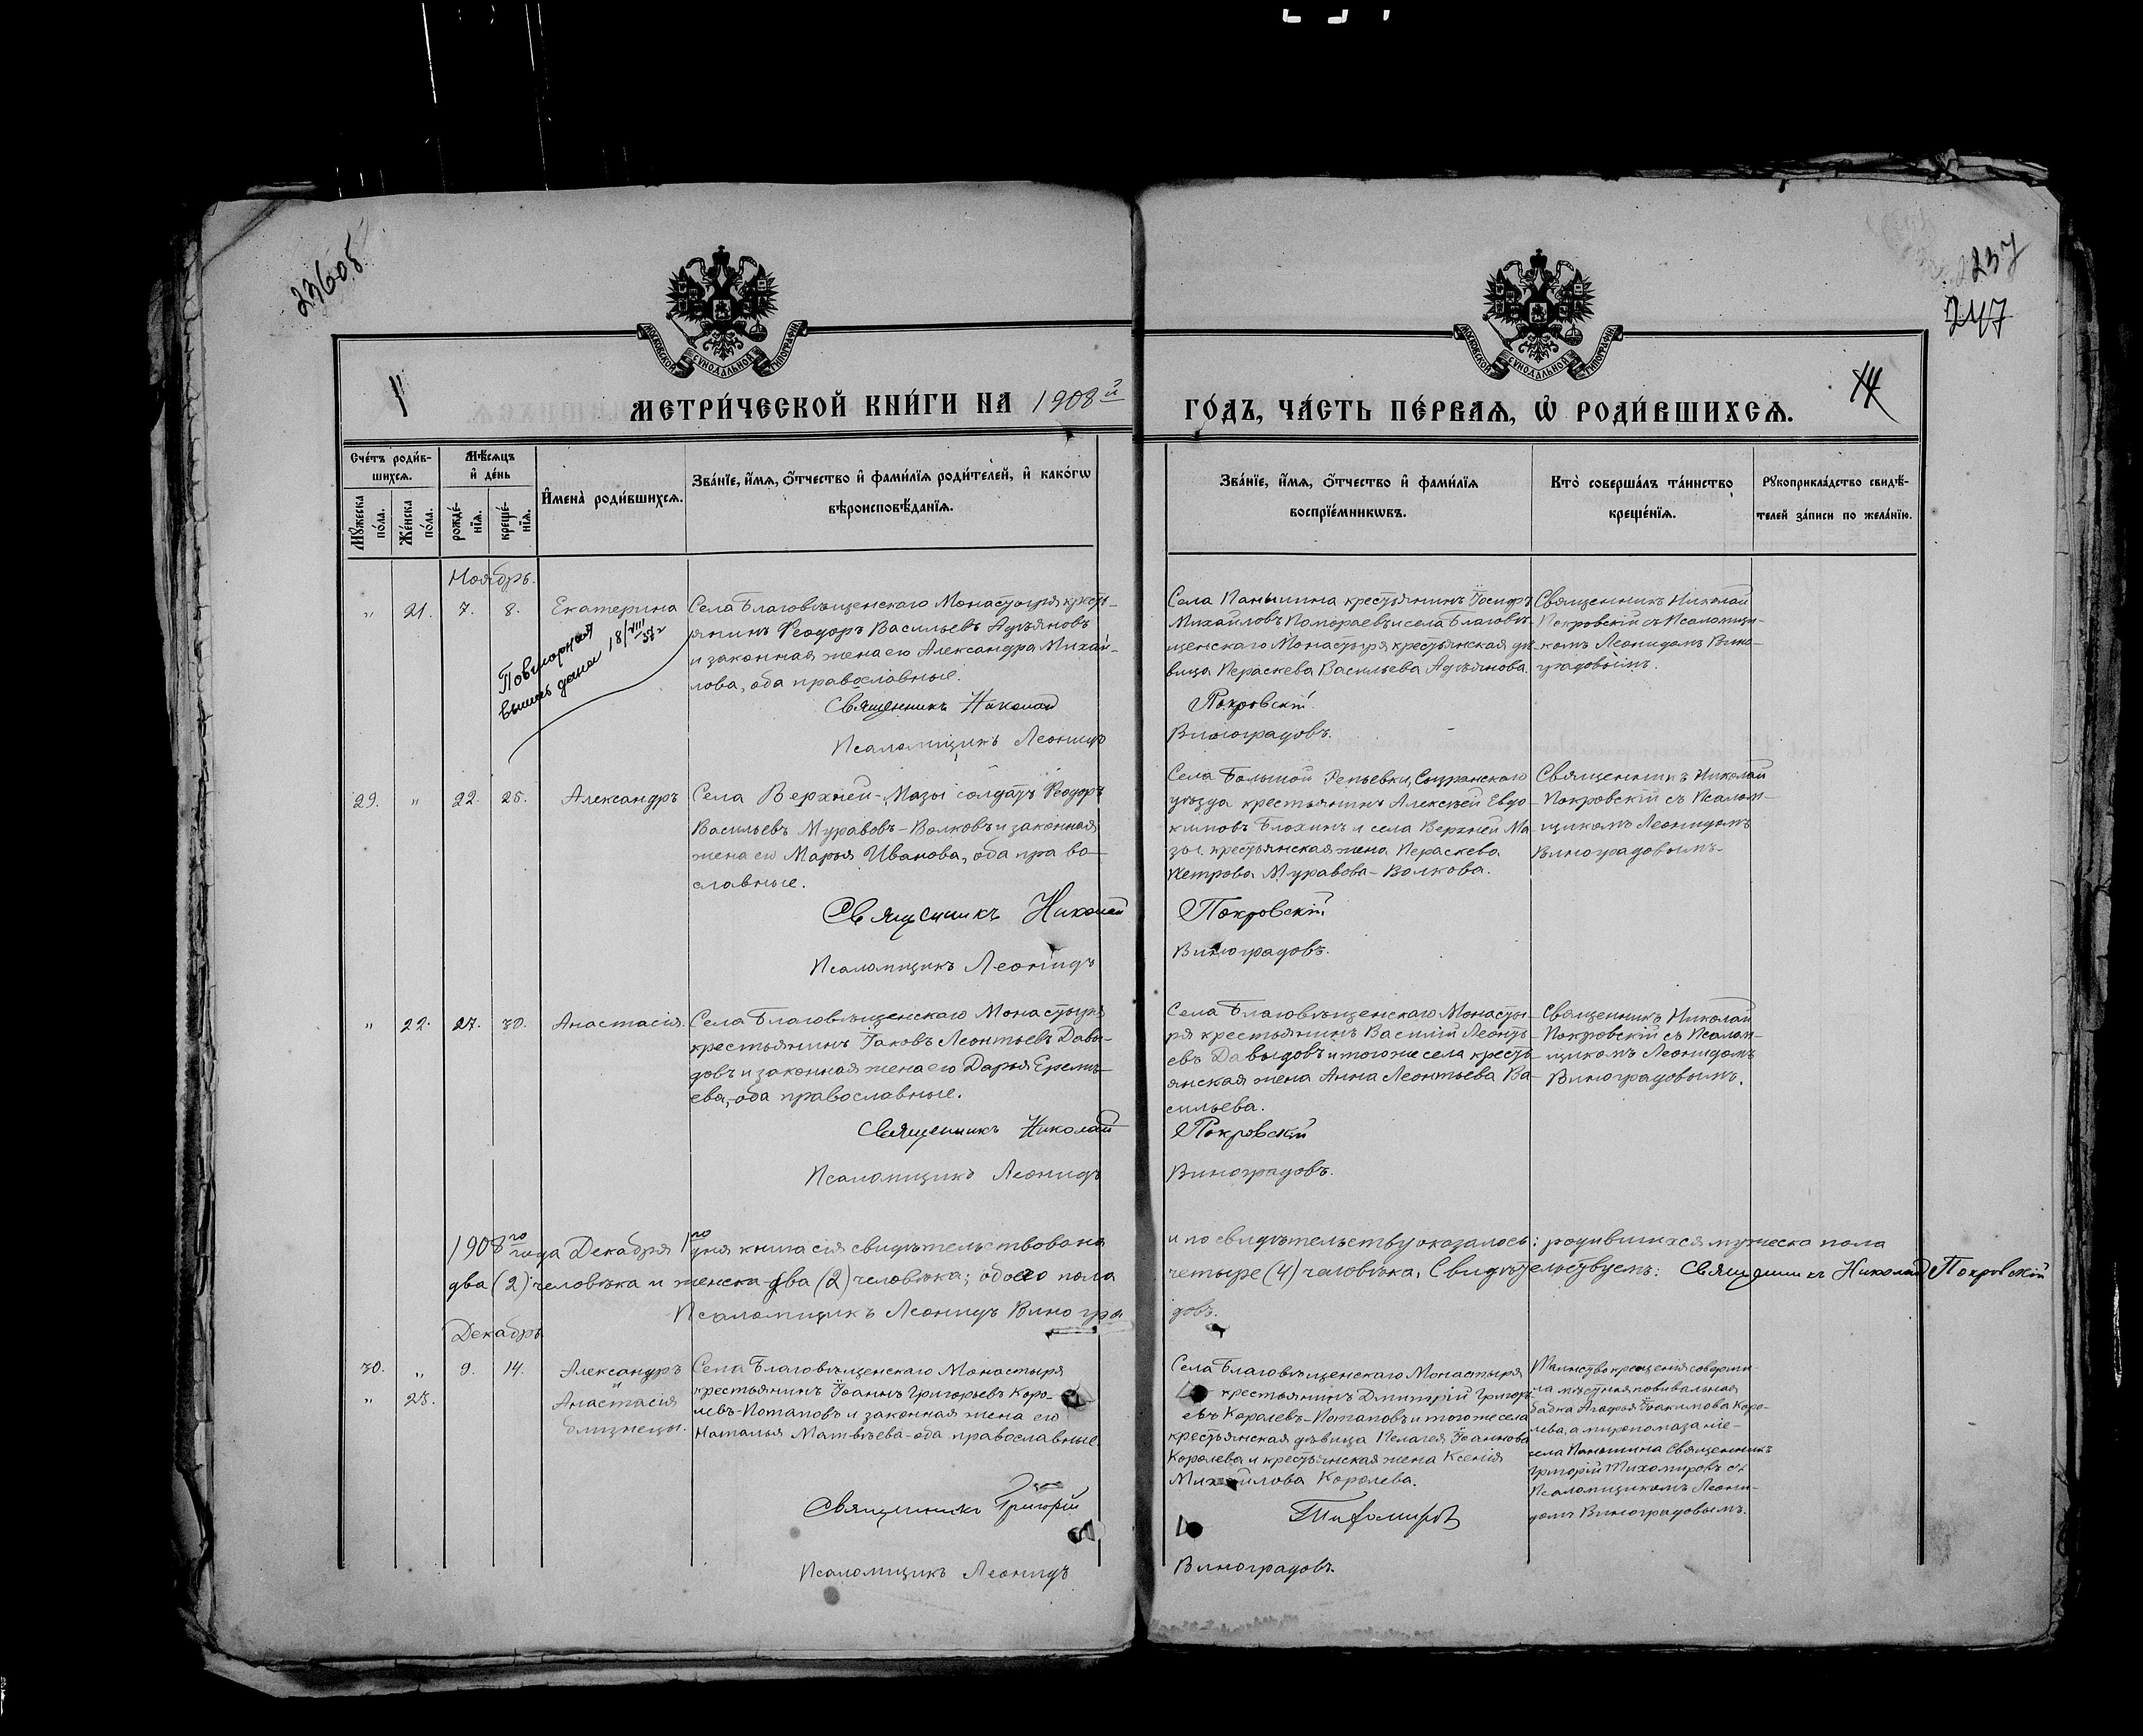 23605
237
247
МОСКОВСКОЙ СѴНОДАЛЬНОЙ ТИПОГРАФІИ
МОСКОВСКОЙ СѴНОДАЛЬНОЙ ТИПОГРАФІИ
МЕТРИ́ЧЕСКОЙ КНИ́ГИ НА 1908й
ГО́ДЪ, ЧА́СТЬ ПЕ́РВАѦ, Ѡ҆ РОДИ́ВШИХСѦ.
Сче́тъ роди́в-
шихсѧ.
Мѣ́сѧцъ
и҆ де́нь
Мꙋ́жеска
по́ла.
Же́нска
по́ла.
рожде́-
нїѧ.
креще́-
нїѧ.
И҆мена̀ роди́вшихсѧ.
Зва́нїе, и҆́мѧ, ѻ҆́тчество и҆ фами́лїѧ роди́телей, и҆ како́гѡ
вѣроисповѣ́данїѧ.
Зва́нїе, и҆́мѧ, ѻ҆́тчество и҆ фами́лїѧ
воспрїе́мникѡвъ.
Кто̀ соверша́лъ та́инство
креще́нїѧ.
Рꙋкоприкла́дство свидѣ́-
телей за́писи по жела́нїю.
Ноябрь.
" 21. 7. 8. Екатерина
Повторная
выпись дана 18/VIII
Села Благовѣщенскаго Монастыря кресть-
янинъ Ѳеодоръ Васильевъ Адѣяновъ
и законная жена его Александра Михай-
лова, оба православные.
Священникъ Николай
Псаломщикъ Леонидъ
Села Паньшина крестьянинъ Іосифъ
Михайловъ и села Благовѣ-
щенскаго Монастыря крестьянская дѣ-
вица Параскева Васильева Адѣянова.
Покровскій.
Виноградовъ.
Священникъ Николай
Покровскій съ Псаломщи-
комъ Леонидомъ Вино-
градовымъ.
29. " 22. 25. Александръ
Села Верхней-Мазы солдатъ Ѳеодоръ
Васильевъ Муравовъ-Волковъ и законная
жена его Марья Иванова, оба право-
славные.
Священникъ Николай
Псаломщикъ Леонидъ
Села Большой Репьевки, Сызранскаго
уѣзда крестьянинъ Алексѣй Евдо-
кимовъ Блохинъ и села Верхней Ма-
зы крестьянская жена Параскева
Петрова Муравова-Волкова.
Покровскій
Виноградовъ.
Священникъ Николай
Покровскій съ Псалом-
щикомъ Леонидомъ
Виноградовымъ.
" 22. 27. 30. Анастасія.
Села Благовѣщенскаго Монастыря
крестьянинъ Іаковъ Леонтьевъ Давы-
довъ и законная жена его Дарья Еремѣ-
ева, оба православные.
Священникъ Николай
Псаломщикъ Леонидъ
Села Благовѣщенскаго Монасты-
ря крестьянинъ Василій Леонть-
евъ Давыдовъ и того же села кресть-
янская жена Анна Леонтьева Ва-
сильева.
Покровскій
Виноградовъ.
Священникъ Николай
Покровскій съ Псалом-
щикомъ Леонидомъ
Виноградовымъ.
1908го года Декабря 1го дня книга сія свидѣтельствована
и по свидѣтельству оказалось: родившихся мужеска пола
два (2) человѣка и женска два (2) человѣка; обоего пола
четыре (4) человѣка. Свидѣтельствуемъ: Священникъ Николай Покровскій
Псаломщикъ Леонидъ Виногра
довъ.
Декабрь
30. " 9. 14. Александръ
и
" 23. Анастасія
близнецы.
Села Благовѣщенскаго Монастыря
крестьянинъ Іоаннъ Григорьевъ Коро-
левъ-Потаповъ и законная жена его
Наталья Матвѣева-оба православные.
Священникъ Григорій
Псаломщикъ Леонидъ
Села Благовѣщенскаго Монастыря
крестьянинъ Дмитрій Григорь-
евъ Королевъ-Потаповъ и того же села
крестьянская дѣвица Пелагея Іоаннова
Королева и крестьянская жена Ксенія
Михайлова Королева.
Тихомировъ
Виноградовъ.
Таинство крещенія соверши-
ла мѣстная повивальная
бабка Агафья Іоакимова Коро-
лева, а миропомазаніе-
села Паньшина Священникъ
Григорій Тихомировъ съ
Псаломщикомъ Леони-
домъ Виноградовымъ.